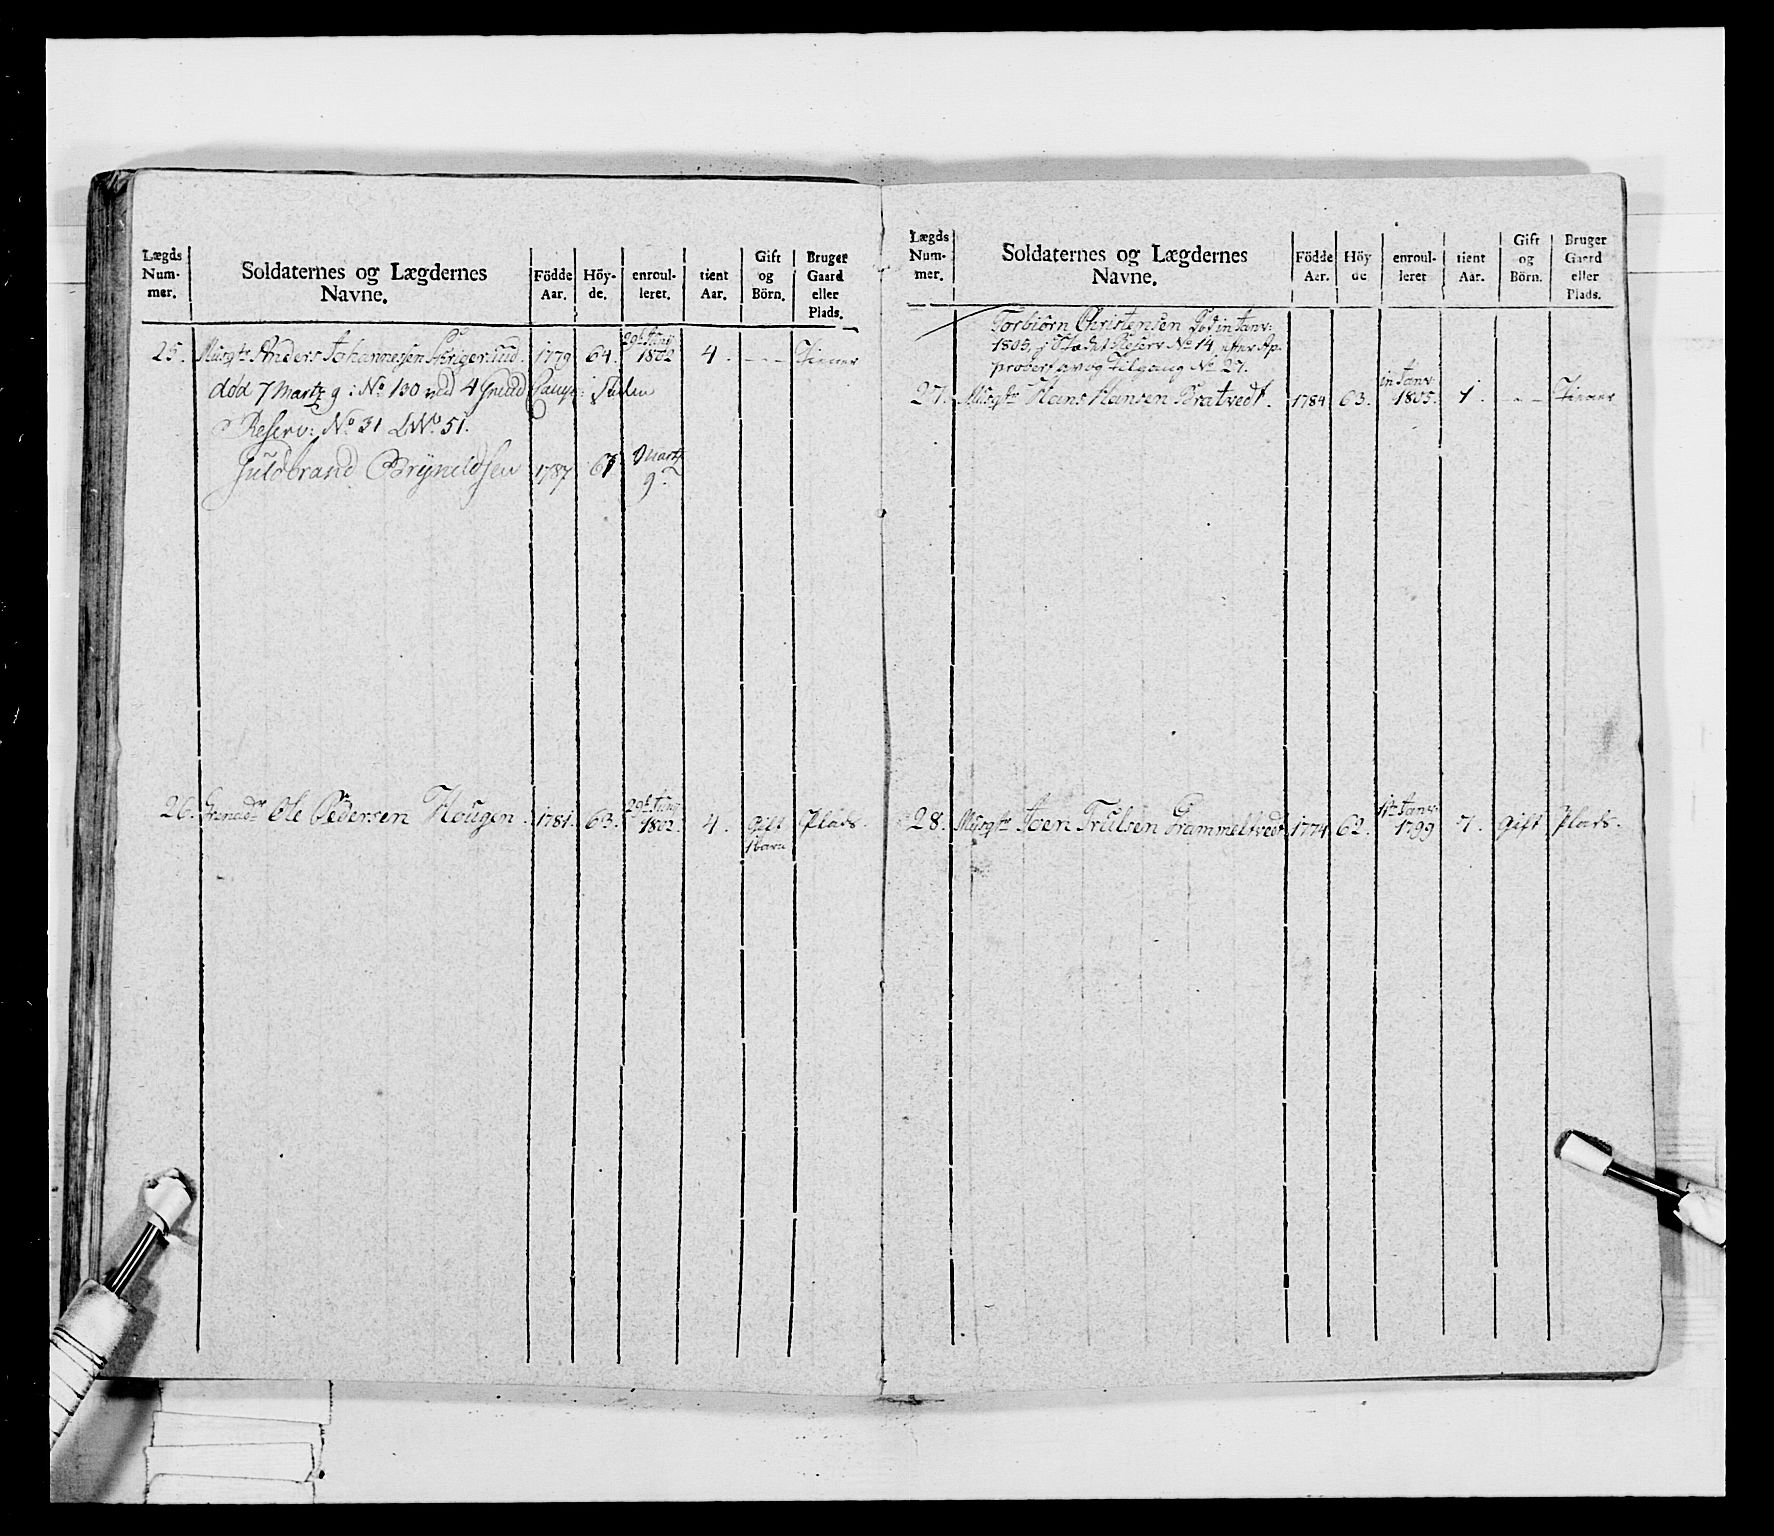 Lægds Num-mer. Soldaternes og Lægdernes Navne. Födde Aar. Höy-de. enroul-leret. tient Aar. Gift og Börn. Bruger Gaard eller Plads.
25. Musqtr Anders Johannesen 1779 64. 29t Junÿ 1802 4. - - - Tiener
død 7 Martz 9: No 130 ved 4
Reserv: No 31 LNo 51.
Juldbrand Brÿnildsen 1787 61 Martz 9
26. Grenadr Ole Pedersen Hougen. 1781. 63. 29t Junÿ 1802. 4. Gift 1 barn Plads.
Lægds Num-mer. Soldaternes og Lægdernes Navne. Födde Aar. Höy de enroul-leret tient Aar. Gift og Börn. Bruger Gaard eller Plads.
Torbiörn Christensen Död in Janv:
1805, j Stædet Reserv No 14 efter Ap-
probert av og Tilgang No 27.
27. Musqtr Hans Hansen Bratvedt. 1784 63. in Janv: 1805. 1. - - - Tiener
28. Musqtr Joen Trulsen Grammeltvedt 1774 62. 1t Janv: 1799 7. Gift Plads.